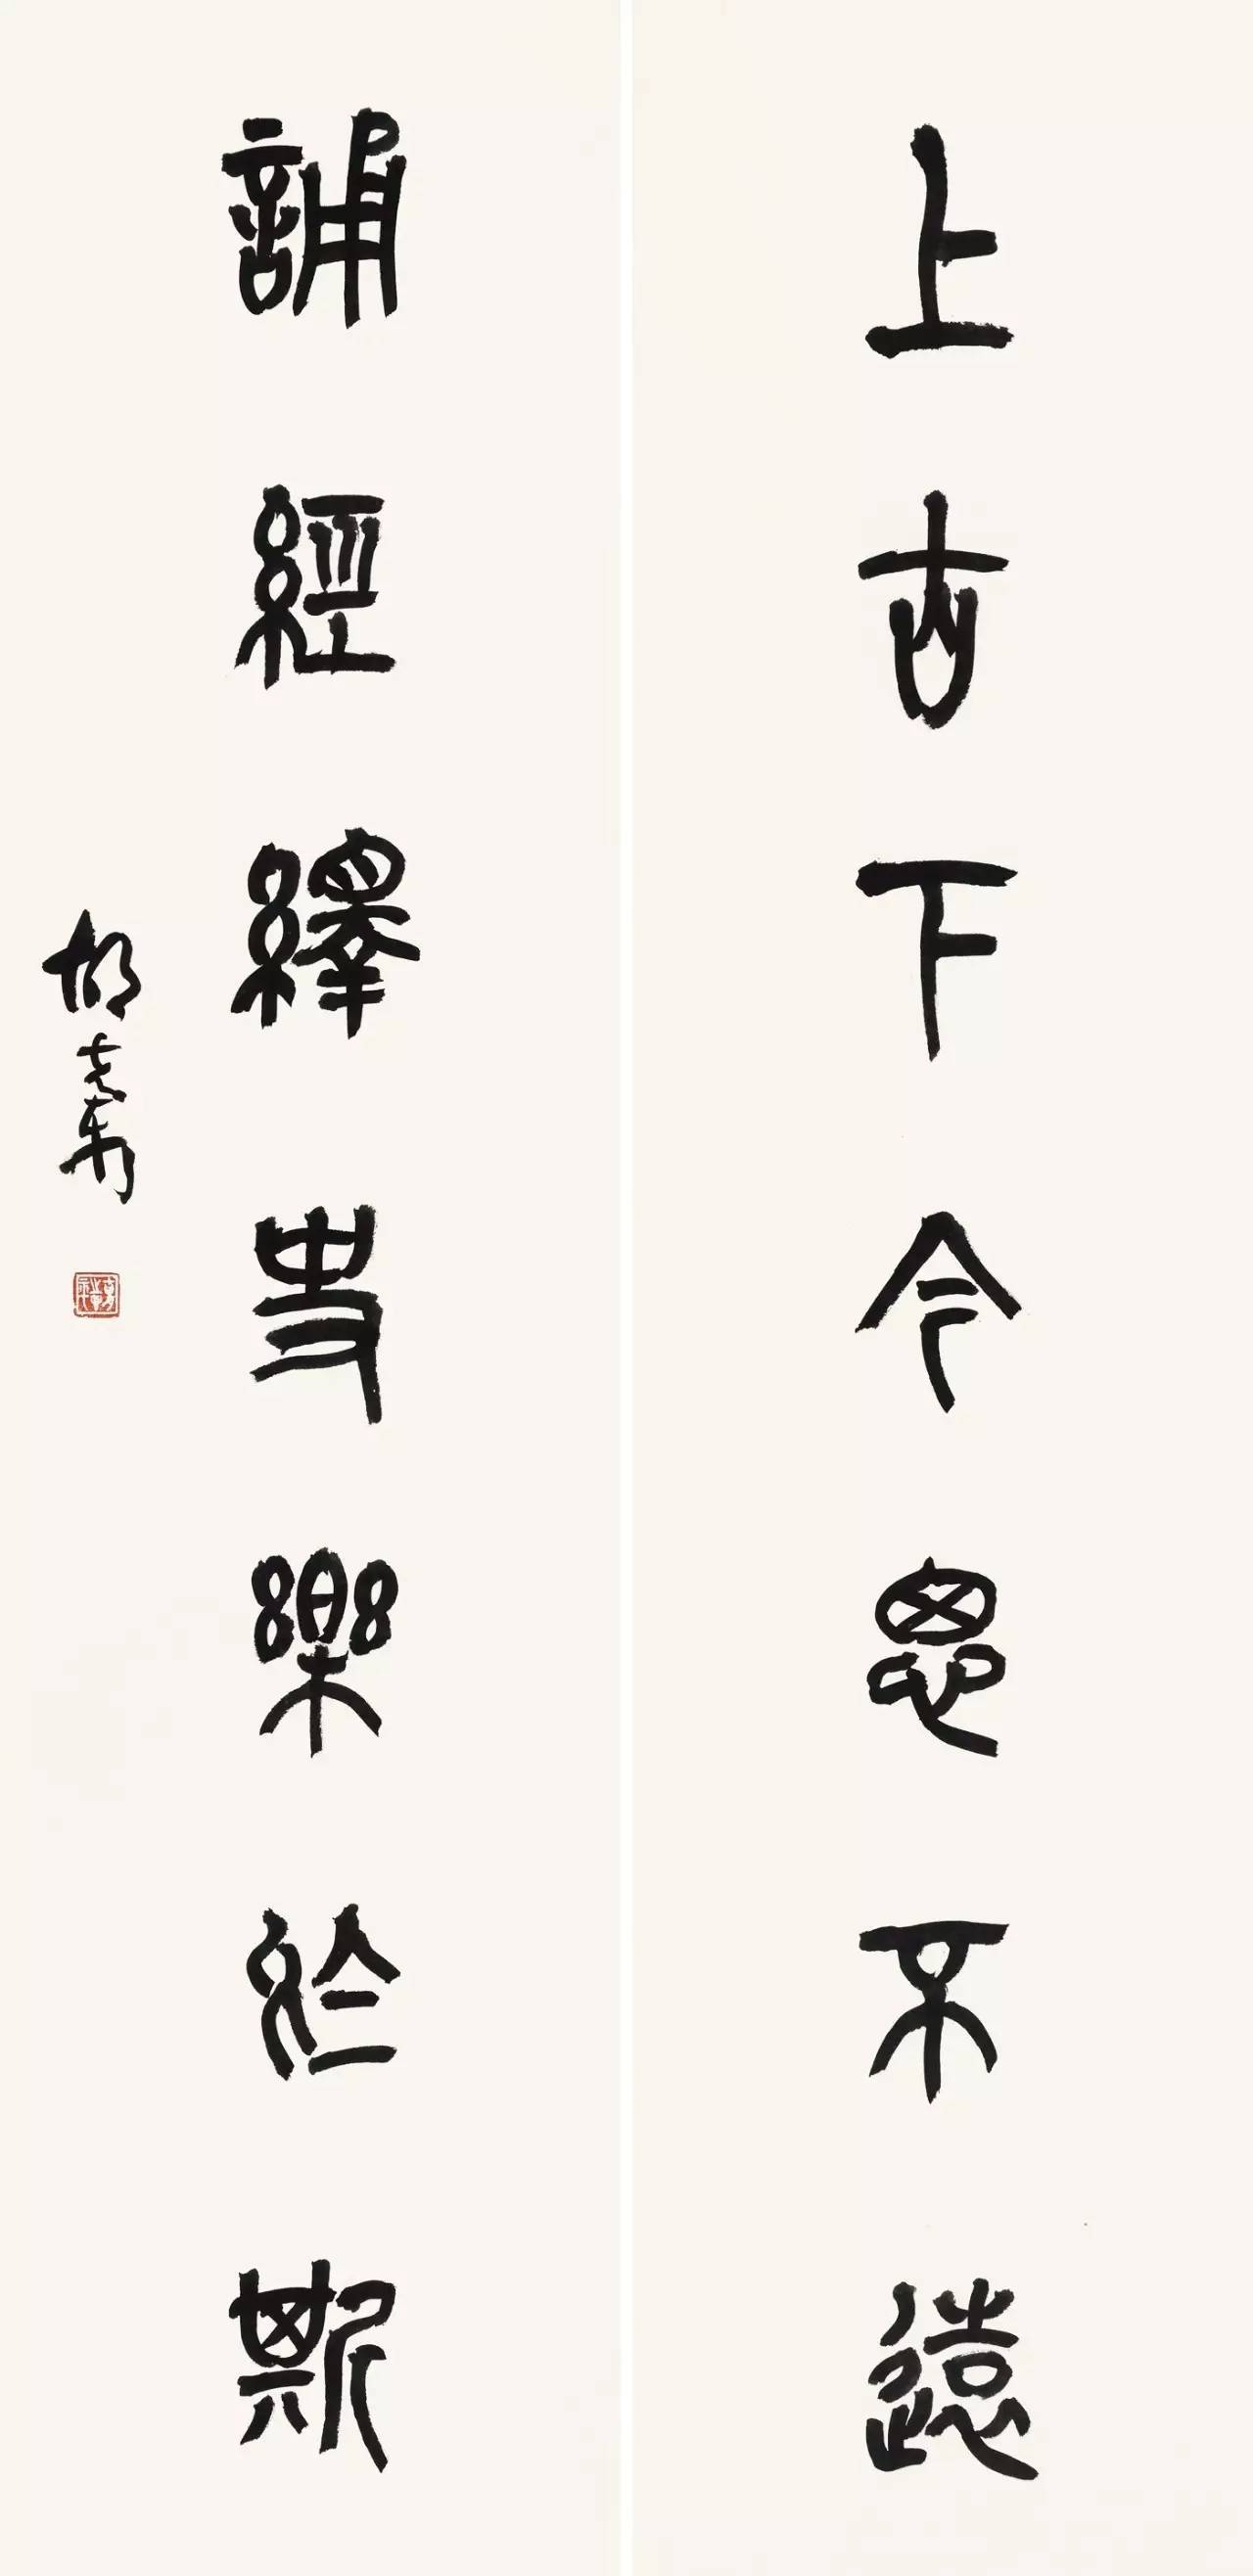 上古下今思不遠
誦經繹史樂於斯